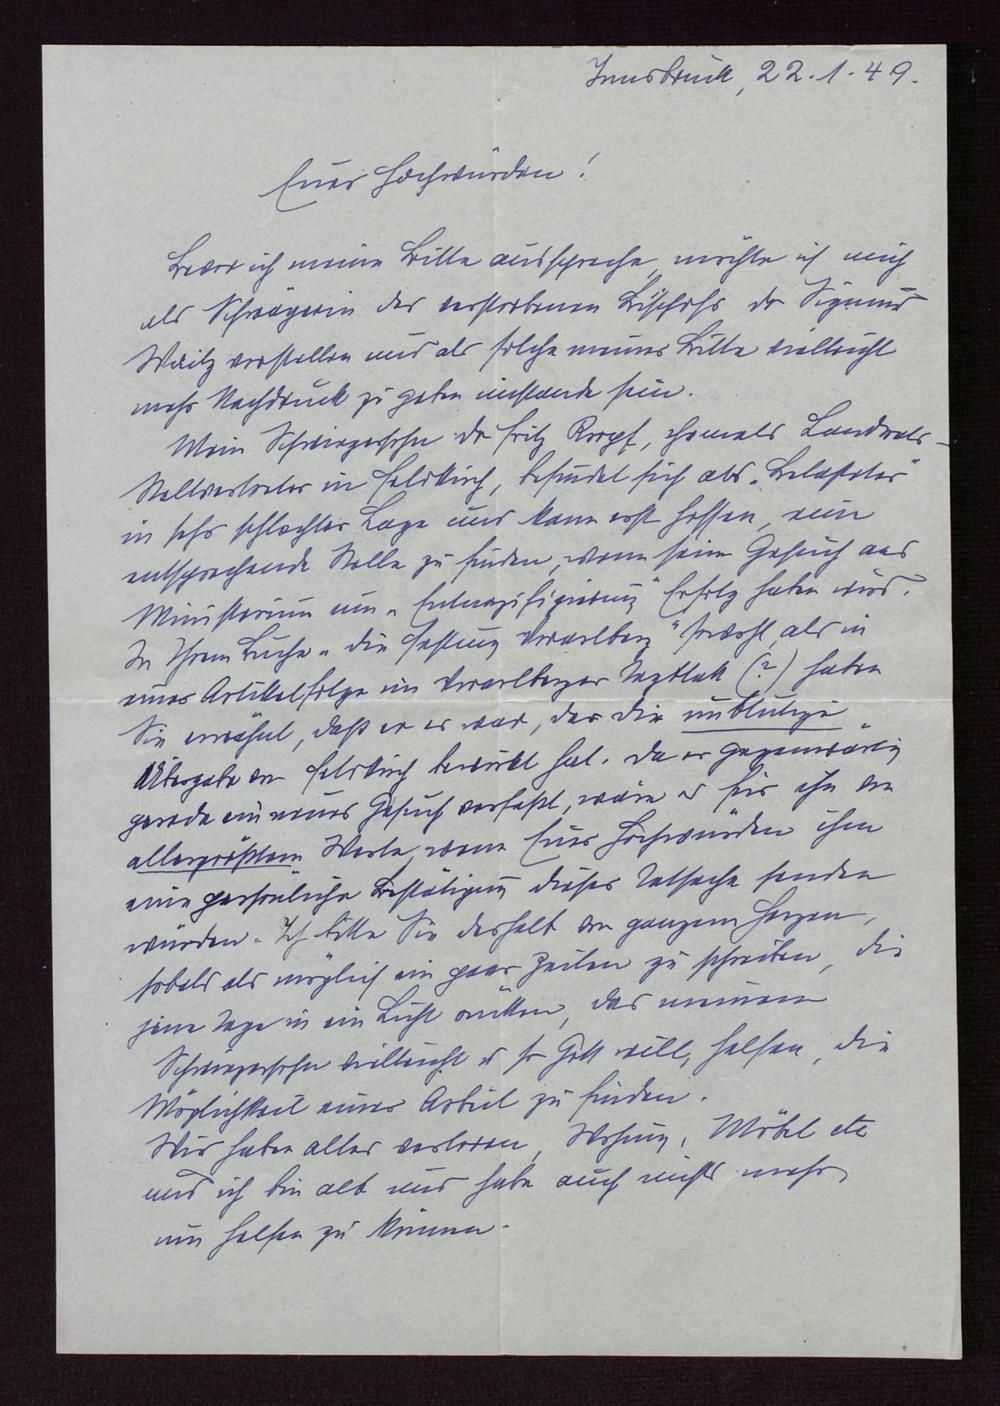 Innsbruck, 22.1.49.
Euer Hochwürden!
Bevor ich meine Bitte ausspreche, möchte ich mich
als Schwägerin des verstorbenen Bischofs Dr Sigmund
Waitz vorstellen und als solche meiner Bitte vielleicht
mehr Nachdruck zu geben imstande sein.
Mein Schwiegersohn Dr Fritz, ehemals Landrats-
Stellvertreter in Feldkirch, befindet sich als „Belasteter"
in sehr schlechter Lage und kann erst hoffen, eine
entsprechende Stelle zu finden, wenn sein Gesuch ans
Ministerium um „Entnazifizierung" Erfolg haben wird.
In Ihrem Buche „die Festung Vorarlberg" sowohl, als in
einer Artikelfolge im Vorarlberger Tagblatt (?) haben
Sie erwähnt, daß er es war, der die unblutige
Übergabe von Feldkirch bewirkt hat. Da er gegenwärtig
gerade ein neues Gesuch verfaßt, wäre es für ihn von
allergrößtem Werte, wenn Euer Hochwürden ihm
eine persönliche Bestätigung dieser Tatsache senden
würden. Ich bitte Sie deshalb von ganzem Herzen,
sobald als möglich ein paar Zeilen zu schreiben, die
jene Tage in ein Licht rücken, das meinem
Schwiegersohn vielleicht so Gott will, helfen, die
Möglichkeit einer Arbeit zu finden.
Wir haben alles verloren, Wohnung, Möbel etc
und ich bin alt und habe auch nichts mehr,
um helfen zu können.